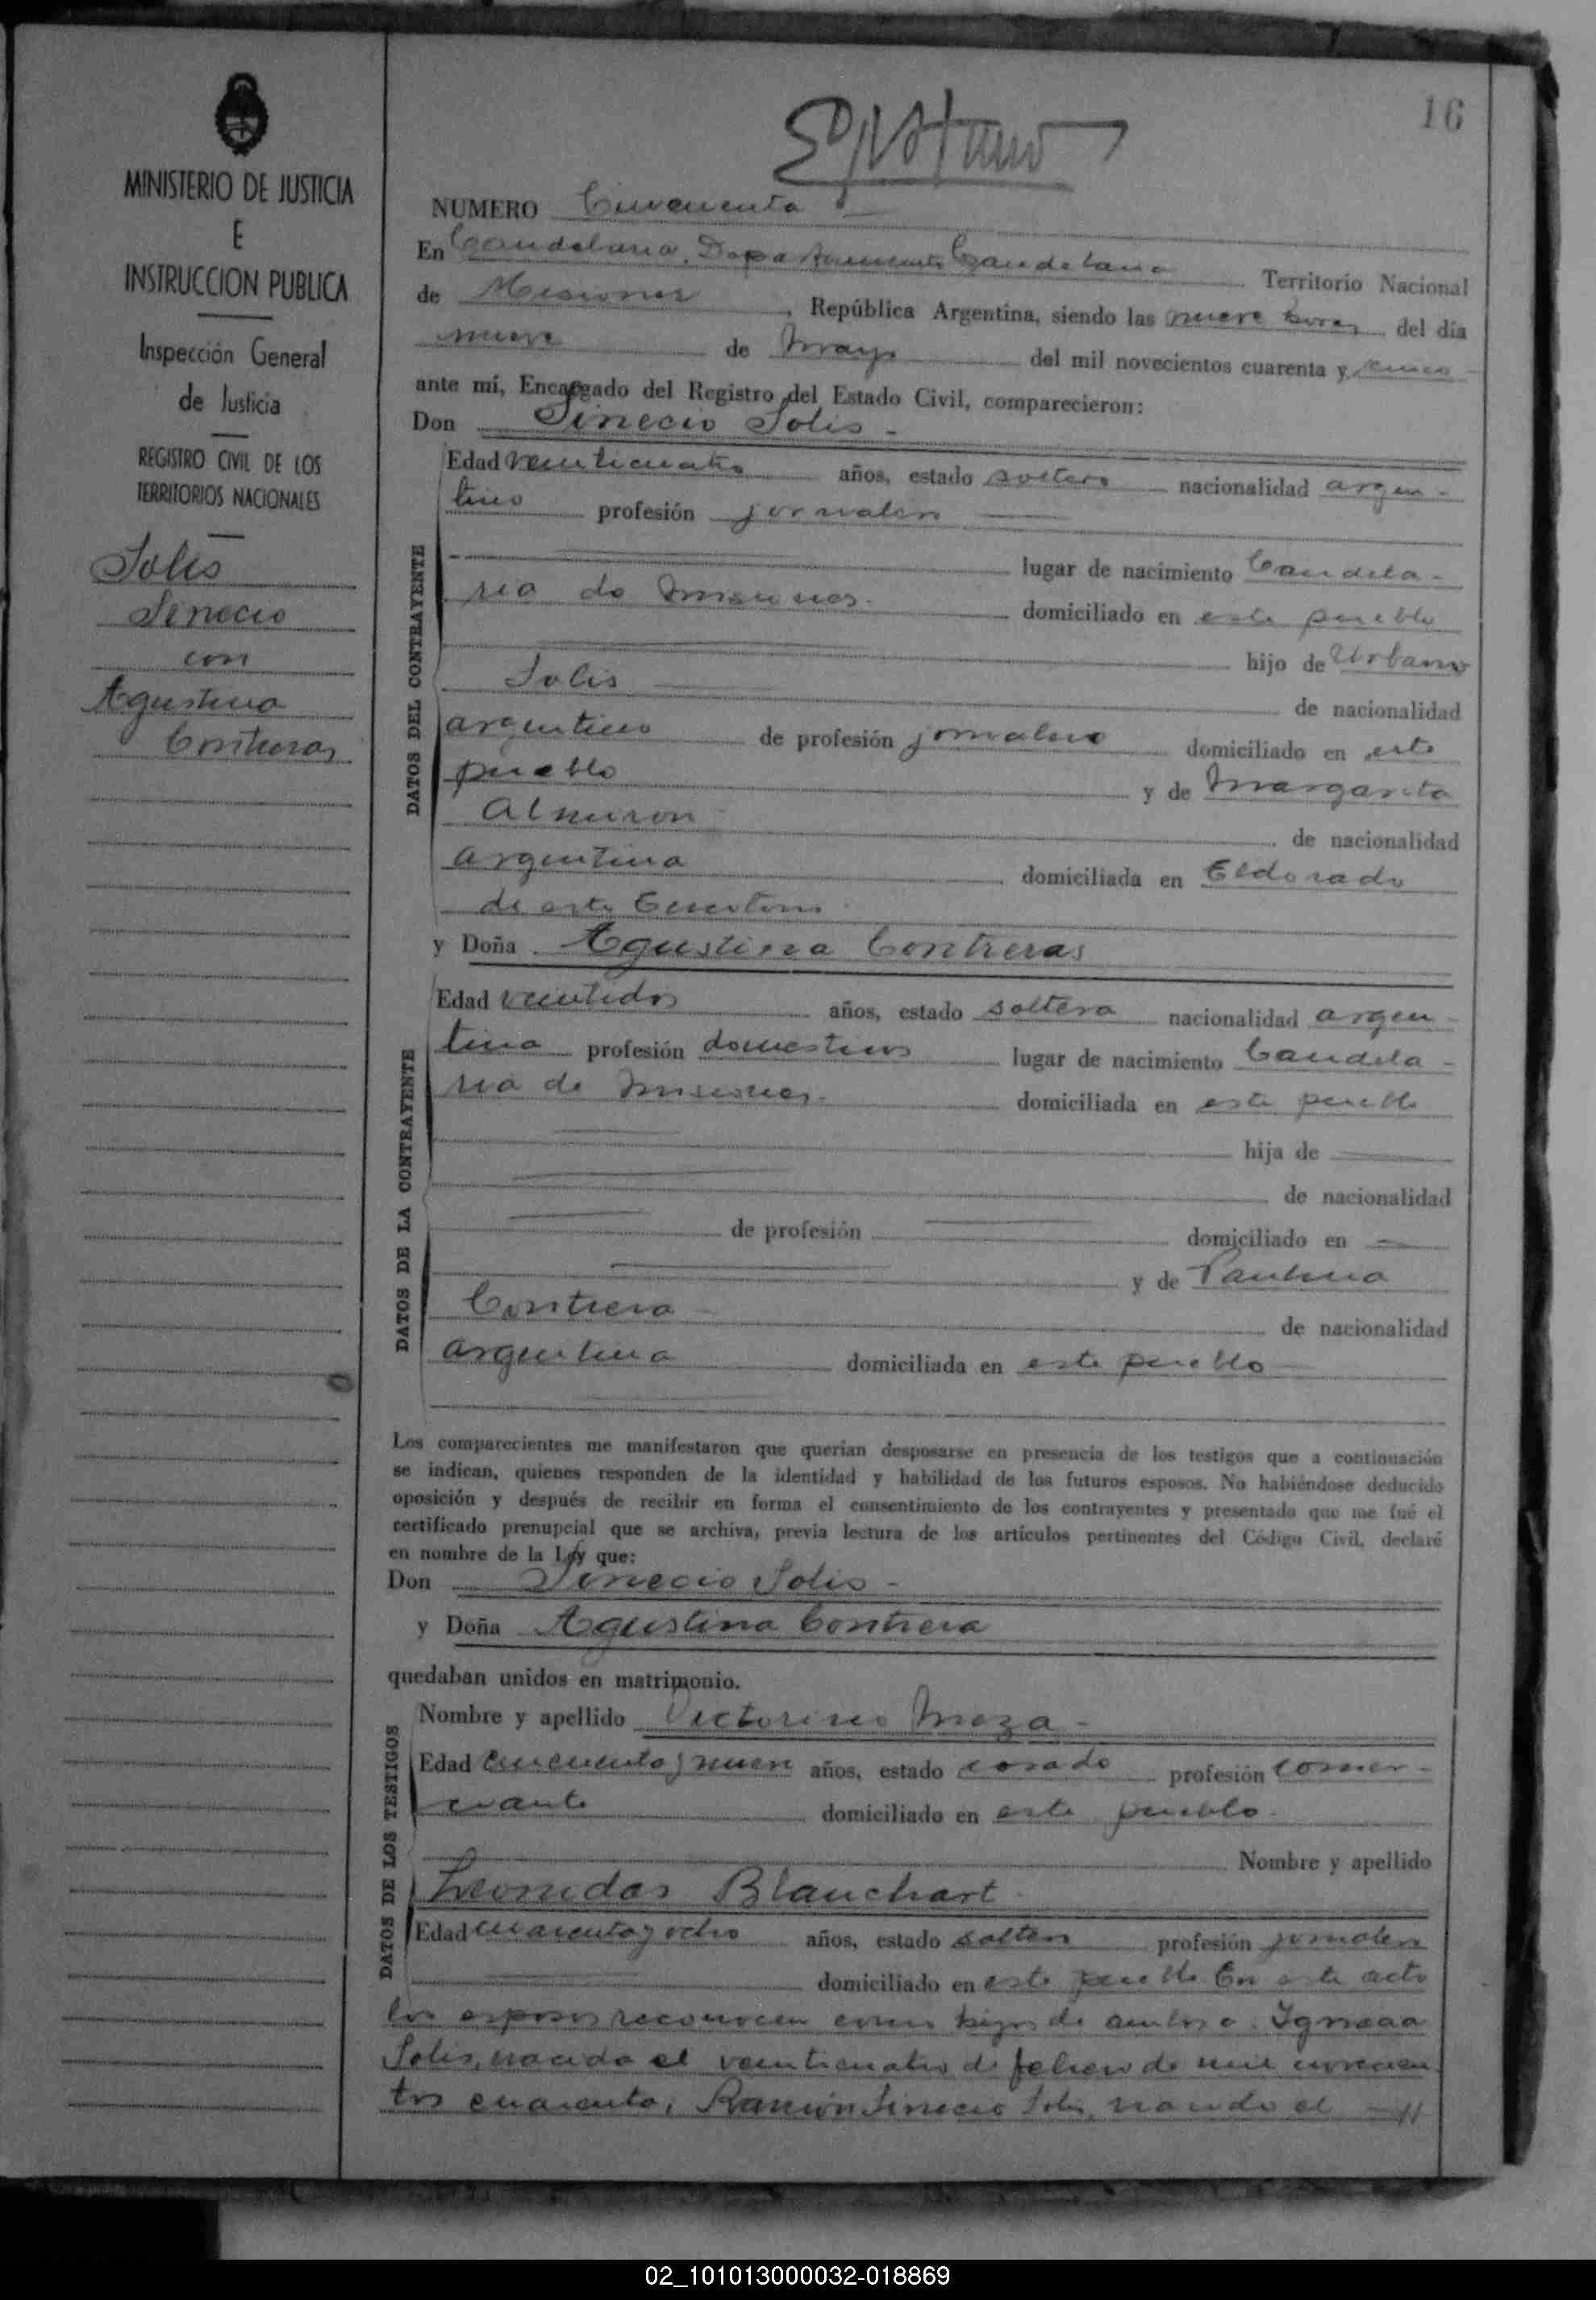 16
MINISTERIO DE JUSTICIA
E
INSTRUCCION PUBLICA
Inspección General
de Justicia
REGISTRO CIVIL DE LOS
TERRITORIOS NACIONALES
Solis
Sinecio
con
Agustina
Contreras
NUMERO Cincuenta
En Candelaria, Departamento Candelaria Territorio Nacional
de Misiones, República Argentina, siendo las nueve horas del día
nueve de Mayo del mil novecientos cuarenta y cinco
ante mí, Encargado del Registro del Estado Civil, comparecieron:
Don Sinecio Solis -
DATOS DEL CONTRAYENTE
Edad veinticuatro años, estado soltero nacionalidad argen-
tino profesión jornalero
lugar de nacimiento Candela-
ria de Misiones. domiciliado en este pueblo
hijo de Urbano
Solis de nacionalidad
argentino de profesión jornalero domiciliado en este
pueblo y de Margarita
Almiron de nacionalidad
argentina domiciliada en Eldorado
de este Territorio
y Doña Agustina Contreras
DATOS DE LA CONTRAYENTE
Edad veintidos años, estado soltera nacionalidad argen-
tina profesión domesticos lugar de nacimiento Candela-
ria de Misiones. domiciliada en este pueblo
hija de
de nacionalidad
de profesión domiciliado en
y de Paulina
Contrera de nacionalidad
argentina domiciliada en este pueblo
Los comparecientes me manifestaron que querían desposarse en presencia de los testigos que a continuación
se indican, quienes responden de la identidad y habilidad de los futuros esposos. No habiéndose deducido
oposición y después de recibir en forma el consentimiento de los contrayentes y presentado que me fué el
certificado prenupcial que se archiva, previa lectura de los artículos pertinentes del Código Civil, declaré
en nombre de la Ley que:
Don Sinecio Solis -
y Doña Agustina Contrera
quedaban unidos en matrimonio.
DATOS DE LOS TESTIGOS
Nombre y apellido Victorino Meza -
Edad cincuenta y nueve años, estado casado profesión comer-
ciante domiciliado en este pueblo.
Nombre y apellido
Leonidas Blanchart
Edad cuarenta y ocho años, estado soltero profesión jornalero
domiciliado en este pueblo En este acto
los esposos reconocen como hijos de ambos a: Ignacia
Solis, nacida el veinticuatro de febrero de mil novecien
tos cuarenta, Ramón Sinecio Solis, nacido el -//
02_101013000032-018869